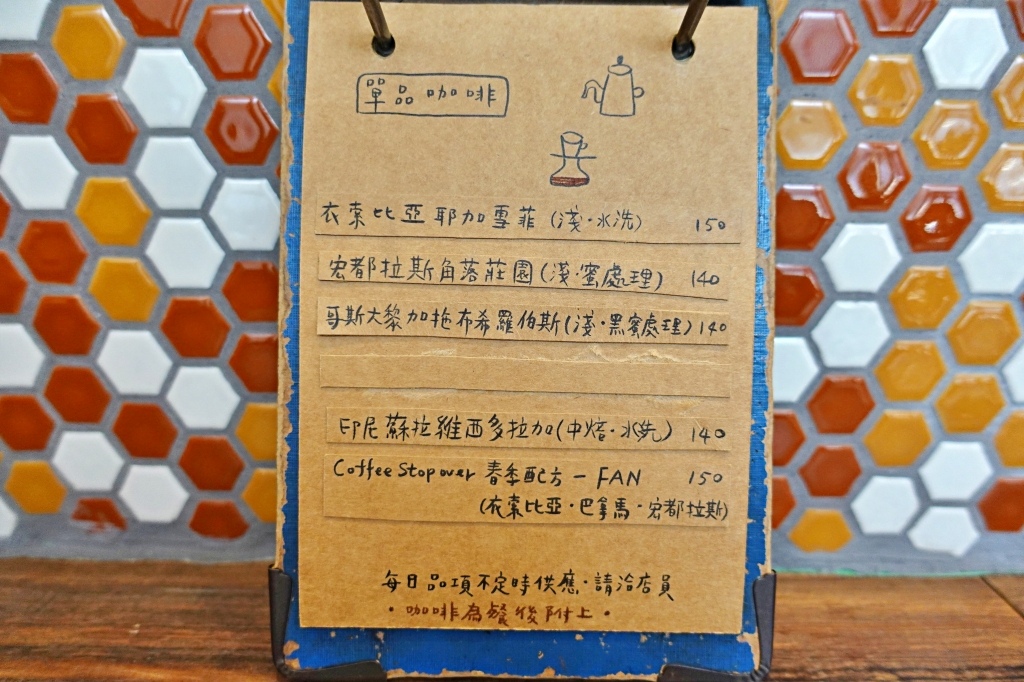 單品咖啡
衣索比亞耶加雪菲(淺·水洗) 150
宏都拉斯角落莊園(淺·蜜處理) 140
哥斯大黎加拖布希羅伯斯(淺·黑蜜處理) 140
印尼蘇拉維西多拉加(中焙·水洗) 140
Coffee Stopover 春季配方 — FAN 150
(衣索比亞·巴拿馬·宏都拉斯)
每日品項不定時供應·請洽店員
·咖啡為餐後附上·